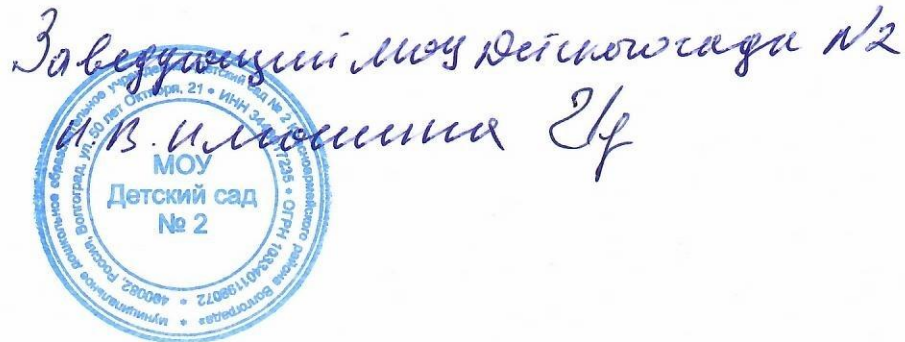 Заведующий МОУ Детского сада №2
И.В. Илюшина
МОУ
Детский сад
№ 2
муниципальное дошкольное образовательное учреждение Детский сад № 2 Красноармейского района Волгограда
400082, Россия, Волгоград, ул. 50 лет Октября, 21 • ИНН • ОГРН 1033401198072